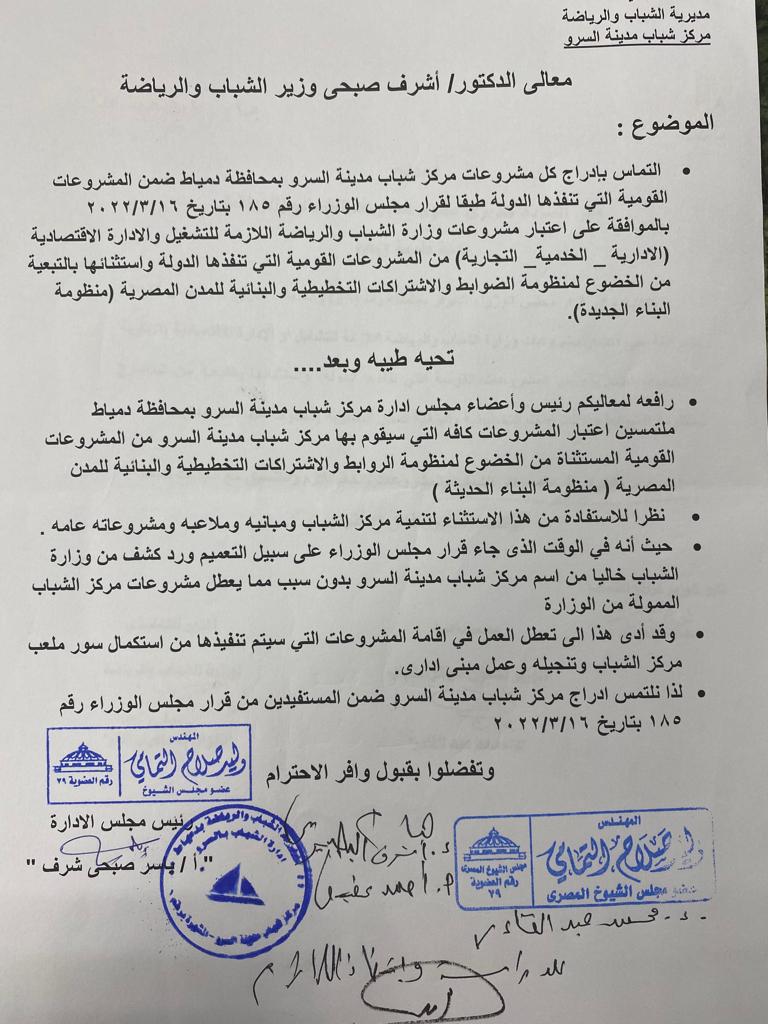 مديرية الشباب والرياضة
مركز شباب مدينة السرو
معالى الدكتور/ أشرف صبحى وزير الشباب والرياضة
الموضوع :
• التماس بإدراج كل مشروعات مركز شباب مدينة السرو بمحافظة دمياط ضمن المشروعات
القومية التي تنفذها الدولة طبقا لقرار مجلس الوزراء رقم ١٨٥ بتاريخ ٢٠٢٢/٣/١٦
بالموافقة على اعتبار مشروعات وزارة الشباب والرياضة اللازمة للتشغيل والادارة الاقتصادية
(الادارية _ الخدمية_ التجارية) من المشروعات القومية التي تنفذها الدولة واستثنائها بالتبعية
من الخضوع لمنظومة الضوابط والاشتراكات التخطيطية والبنائية للمدن المصرية (منظومة
البناء الجديدة).
تحيه طيبه وبعد....
• رافعه لمعاليكم رئيس وأعضاء مجلس ادارة مركز شباب مدينة السرو بمحافظة دمياط
ملتمسين اعتبار المشروعات كافه التي سيقوم بها مركز شباب مدينة السرو من المشروعات
القومية المستثناة من الخضوع لمنظومة الروابط والاشتراكات التخطيطية والبنائية للمدن
المصرية ( منظومة البناء الحديثة )
• نظرا للاستفادة من هذا الاستثناء لتنمية مركز الشباب ومبانيه وملاعبه ومشروعاته عامه .
• حيث أنه في الوقت الذى جاء قرار مجلس الوزراء على سبيل التعميم ورد كشف من وزارة
الشباب خاليا من اسم مركز شباب مدينة السرو بدون سبب مما يعطل مشروعات مركز الشباب
الممولة من الوزارة
• وقد أدى هذا الى تعطل العمل في اقامة المشروعات التي سيتم تنفيذها من استكمال سور ملعب
مركز الشباب وتنجيله وعمل مبنى ادارى.
• لذا نلتمس ادراج مركز شباب مدينة السرو ضمن المستفيدين من قرار مجلس الوزراء رقم
١٨٥ بتاريخ ٢٠٢٢/٣/١٦
وتفضلوا بقبول وافر الاحترام
المهندس
وليد صلاح التمامي
عضو مجلس الشيوخ
رقم العضوية ٢٩
رئيس مجلس الادارة
" أ / ياسر صبحى شرف "
المهندس
وليد صلاح التمامي
عضو مجلس الشيوخ المصرى
مجلس الشيوخ المصرى
رقم العضوية
٢٩
ادارة الشباب بالسرو
د. محمد عبد القادر
للدراسة واتخاذ اللازم